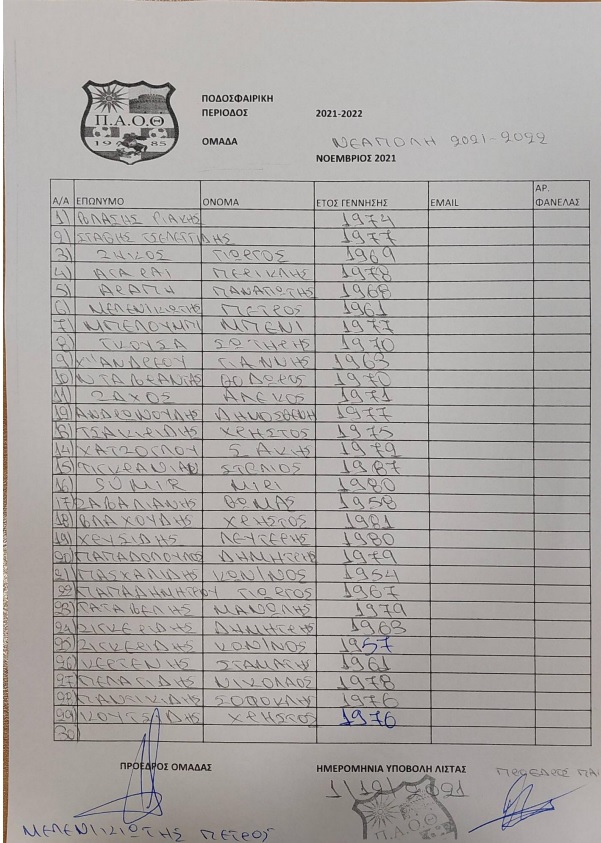 Π.Α.Ο.Θ
1985
ΠΟΔΟΣΦΑΙΡΙΚΗ
ΠΕΡΙΟΔΟΣ 2021-2022
ΟΜΑΔΑ ΝΕΑΠΟΛΗ 2021-2022
ΝΟΕΜΒΡΙΟΣ 2021
Α/Α ΕΠΩΝΥΜΟ ΟΝΟΜΑ ΕΤΟΣ ΓΕΝΝΗΣΗΣ EMAIL ΑΡ. ΦΑΝΕΛΑΣ
1) ΒΛΑΣΗΣ 1974
2) ΣΤΑΘΗΣ ΤΣΕΛΕΓΓΙΔΗΣ 1977
3) ΖΗΚΟΣ ΓΙΩΡΓΟΣ 1969
4) ΠΕΡΙΚΛΗΣ 1978
5) ΑΡΑΠΗ ΠΑΝΑΓΙΩΤΗΣ 1968
6) ΜΕΛΕΝΙΚΙΩΤΗΣ ΠΕΤΡΟΣ 1961
7) ΜΠΕΛΟΥΜΠΙ ΜΠΕΝΙ 1977
8) ΓΚΟΥΣΑ ΣΩΤΗΡΗΣ 1970
9) Χ"ΑΝΔΡΕΟΥ ΓΙΑΝΝΗΣ 1963
10) ΝΤΑΒΕΑΝΤΑΣ ΘΟΔΩΡΟΣ 1970
11) ΖΑΧΟΣ ΑΛΕΚΟΣ 1971
12) ΑΝΔΡΕΟΠΟΥΛΗΣ ΔΗΜΟΣΘΕΝΗ 1977
13) ΤΣΑΚΙΡΙΔΗΣ ΧΡΗΣΤΟΣ 1975
14) ΧΑΤΖΟΓΛΟΥ ΣΑΚΗΣ 1979
15) ΤΙΓΚΡΑΝΙΑΝ ΣΤΕΛΙΟΣ 1987
16) SUMIR MIRI 1980
17) ΣΑΒΑΛΙΑΝΗΣ ΘΩΜΑΣ 1958
18) ΒΛΑΧΟΥΔΗΣ ΧΡΗΣΤΟΣ 1981
19) ΧΡΥΣΙΔΗΣ ΛΕΥΤΕΡΗΣ 1980
20) ΠΑΠΑΔΟΠΟΥΛΟΣ ΔΗΜΗΤΡΗΣ 1979
21) ΠΑΣΧΑΛΙΔΗΣ ΚΩΝ/ΝΟΣ 1954
22 ΠΑΠΑΔΗΜΗΤΡΟΥ ΓΙΩΡΓΟΣ 1967
23) ΓΑΤΑΒΕΛΗΣ ΜΑΝΩΛΗΣ 1979
24 ΖΙΓΚΕΡΙΔΗΣ ΔΗΜΗΤΡΗΣ 1963
25 ΖΙΓΚΕΡΙΔΗΣ ΚΩΝ/ΝΟΣ 1957
26) ΚΕΡΤΕΝΗΣ ΣΤΑΜΑΤΗΣ 1961
27) ΠΕΛΑΓΙΔΗΣ ΝΙΚΟΛΑΟΣ 1978
28) ΣΟΦΟΚΛΗΣ 1976
29) ΚΟΥΤΣΙΔΗΣ ΧΡΗΣΤΟΣ 1976
30)
ΠΡΟΕΔΡΟΣ ΟΜΑΔΑΣ ΗΜΕΡΟΜΗΝΙΑ ΥΠΟΒΟΛΗ ΛΙΣΤΑΣ ΠΡΟΕΔΡΟΣ ΠΑ
1/12/2021
Π.Α.Ο.Θ
ΜΕΛΕΝΙΚΙΩΤΗΣ ΠΕΤΡΟΣ